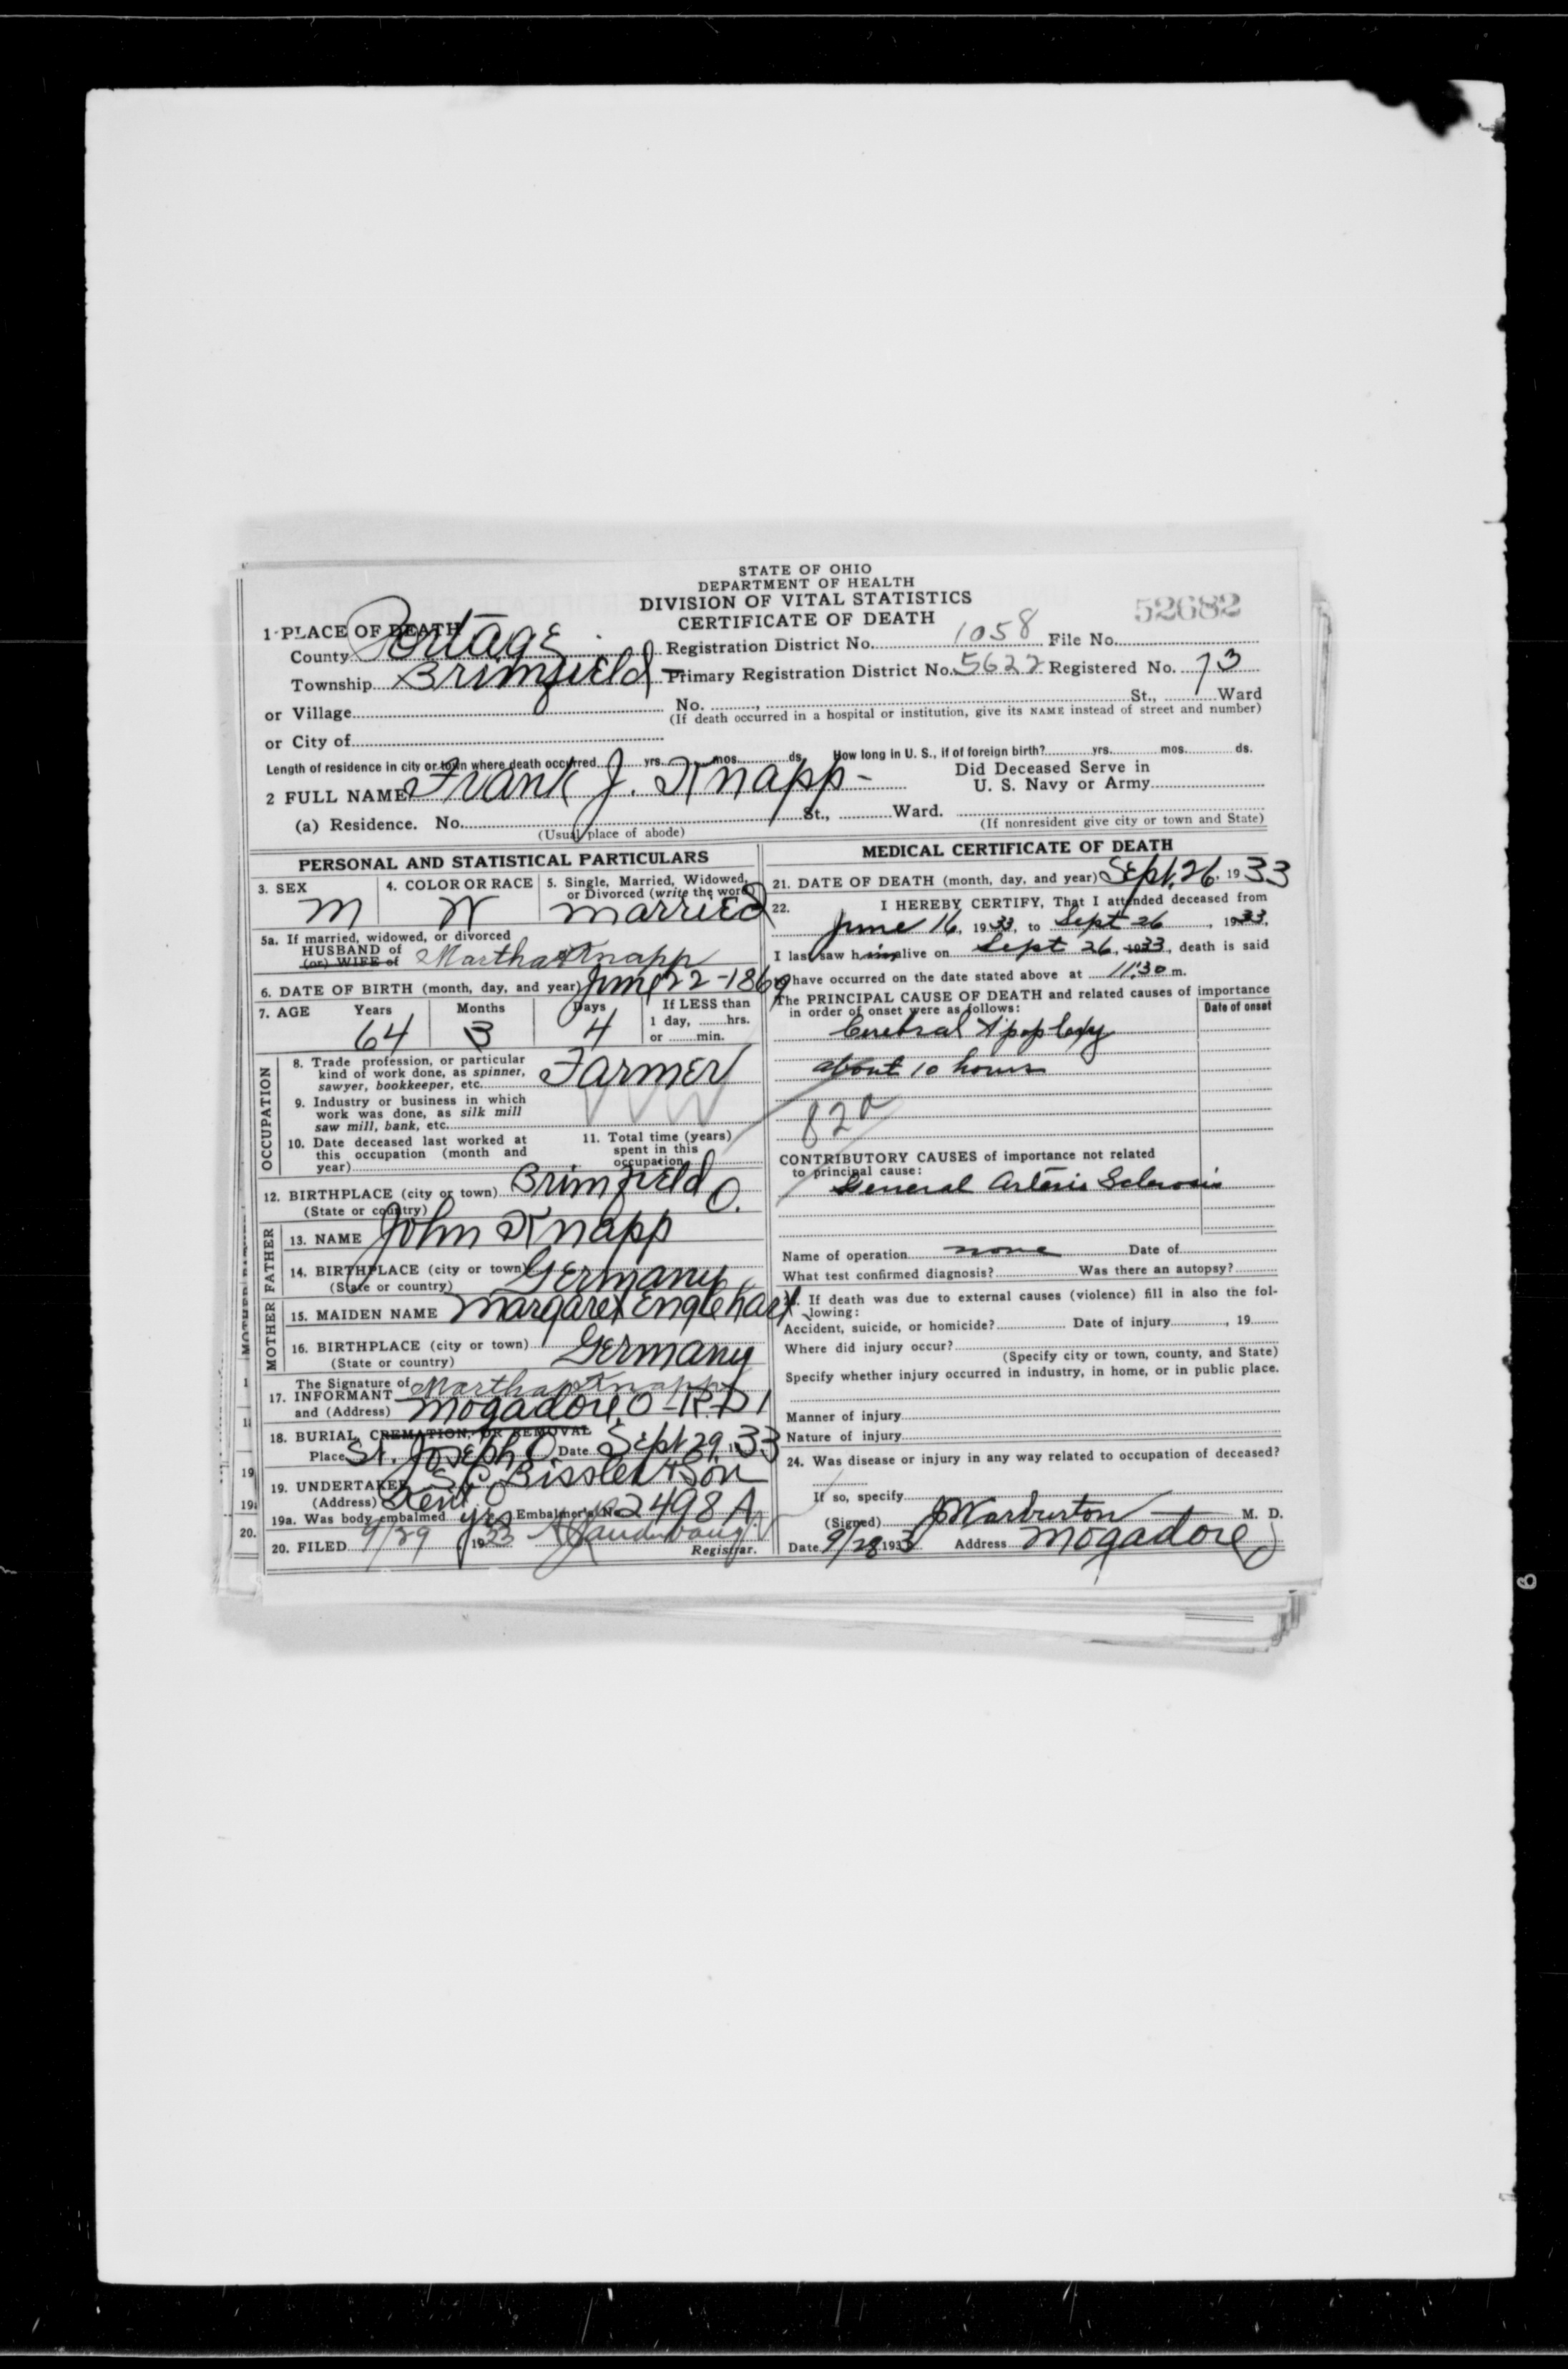 STATE OF OHIO
DEPARTMENT OF HEALTH
DIVISION OF VITAL STATISTICS
CERTIFICATE OF DEATH
52682
1 PLACE OF DEATH
County Portage Registration District No. 1058 File No.
Township Brimfield Primary Registration District No. 5622 Registered No. 73
or Village No. , St., Ward
(If death occurred in a hospital or institution, give its NAME instead of street and number)
or City of
Length of residence in city or town where death occurred yrs. mos. ds. How long in U. S., if of foreign birth? yrs. mos. ds.
2 FULL NAME Frank J. Knapp - Did Deceased Serve in U. S. Navy or Army
(a) Residence. No. St., Ward.
(Usual place of abode) (If nonresident give city or town and State)
PERSONAL AND STATISTICAL PARTICULARS
3. SEX M
4. COLOR OR RACE W
5. Single, Married, Widowed, or Divorced (write the word) married
5a. If married, widowed, or divorced
HUSBAND of
(or) WIFE of Martha Knapp
6. DATE OF BIRTH (month, day, and year) June 22-1869
7. AGE Years 64 Months 3 Days 4 If LESS than 1 day, hrs. or min.
OCCUPATION
8. Trade profession, or particular
kind of work done, as spinner,
sawyer, bookkeeper, etc. Farmer
9. Industry or business in which
work was done, as silk mill
saw mill, bank, etc.
10. Date deceased last worked at
this occupation (month and
year)
11. Total time (years)
spent in this
occupation
12. BIRTHPLACE (city or town) Brimfield O.
(State or country)
FATHER
13. NAME John Knapp
14. BIRTHPLACE (city or town) Germany
(State or country)
MOTHER
15. MAIDEN NAME Margaret Englehart
16. BIRTHPLACE (city or town) Germany
(State or country)
17. The Signature of
INFORMANT Martha Knapp
and (Address) Mogadore, O - R.D 1
18. BURIAL, CREMATION, OR REMOVAL
Place St. Joseph O Date Sept 29, 1933
19. UNDERTAKER S.C. Bissler & Son
(Address) Kent O
19a. Was body embalmed yes Embalmer's No. 2498 A
20. FILED 9/29, 1933
Registrar.
MEDICAL CERTIFICATE OF DEATH
21. DATE OF DEATH (month, day, and year) Sept. 26, 1933
22. I HEREBY CERTIFY, That I attended deceased from
June 16, 1933, to Sept 26, 1933,
I last saw him alive on Sept 26, 1933, death is said
to have occurred on the date stated above at 11:30 m.
The PRINCIPAL CAUSE OF DEATH and related causes of importance
in order of onset were as follows: Date of onset
Cerebral Apoplexy
about 10 hours
82a
CONTRIBUTORY CAUSES of importance not related
to principal cause:
General Arterio Sclerosis
Name of operation none Date of
What test confirmed diagnosis? Was there an autopsy?
If death was due to external causes (violence) fill in also the fol-
lowing:
Accident, suicide, or homicide? Date of injury , 19
Where did injury occur?
(Specify city or town, county, and State)
Specify whether injury occurred in industry, in home, or in public place.
Manner of injury
Nature of injury
24. Was disease or injury in any way related to occupation of deceased?
If so, specify
(Signed) J Warburton M. D.
Date 9/28 1933 Address Mogadore O
19
20.
6